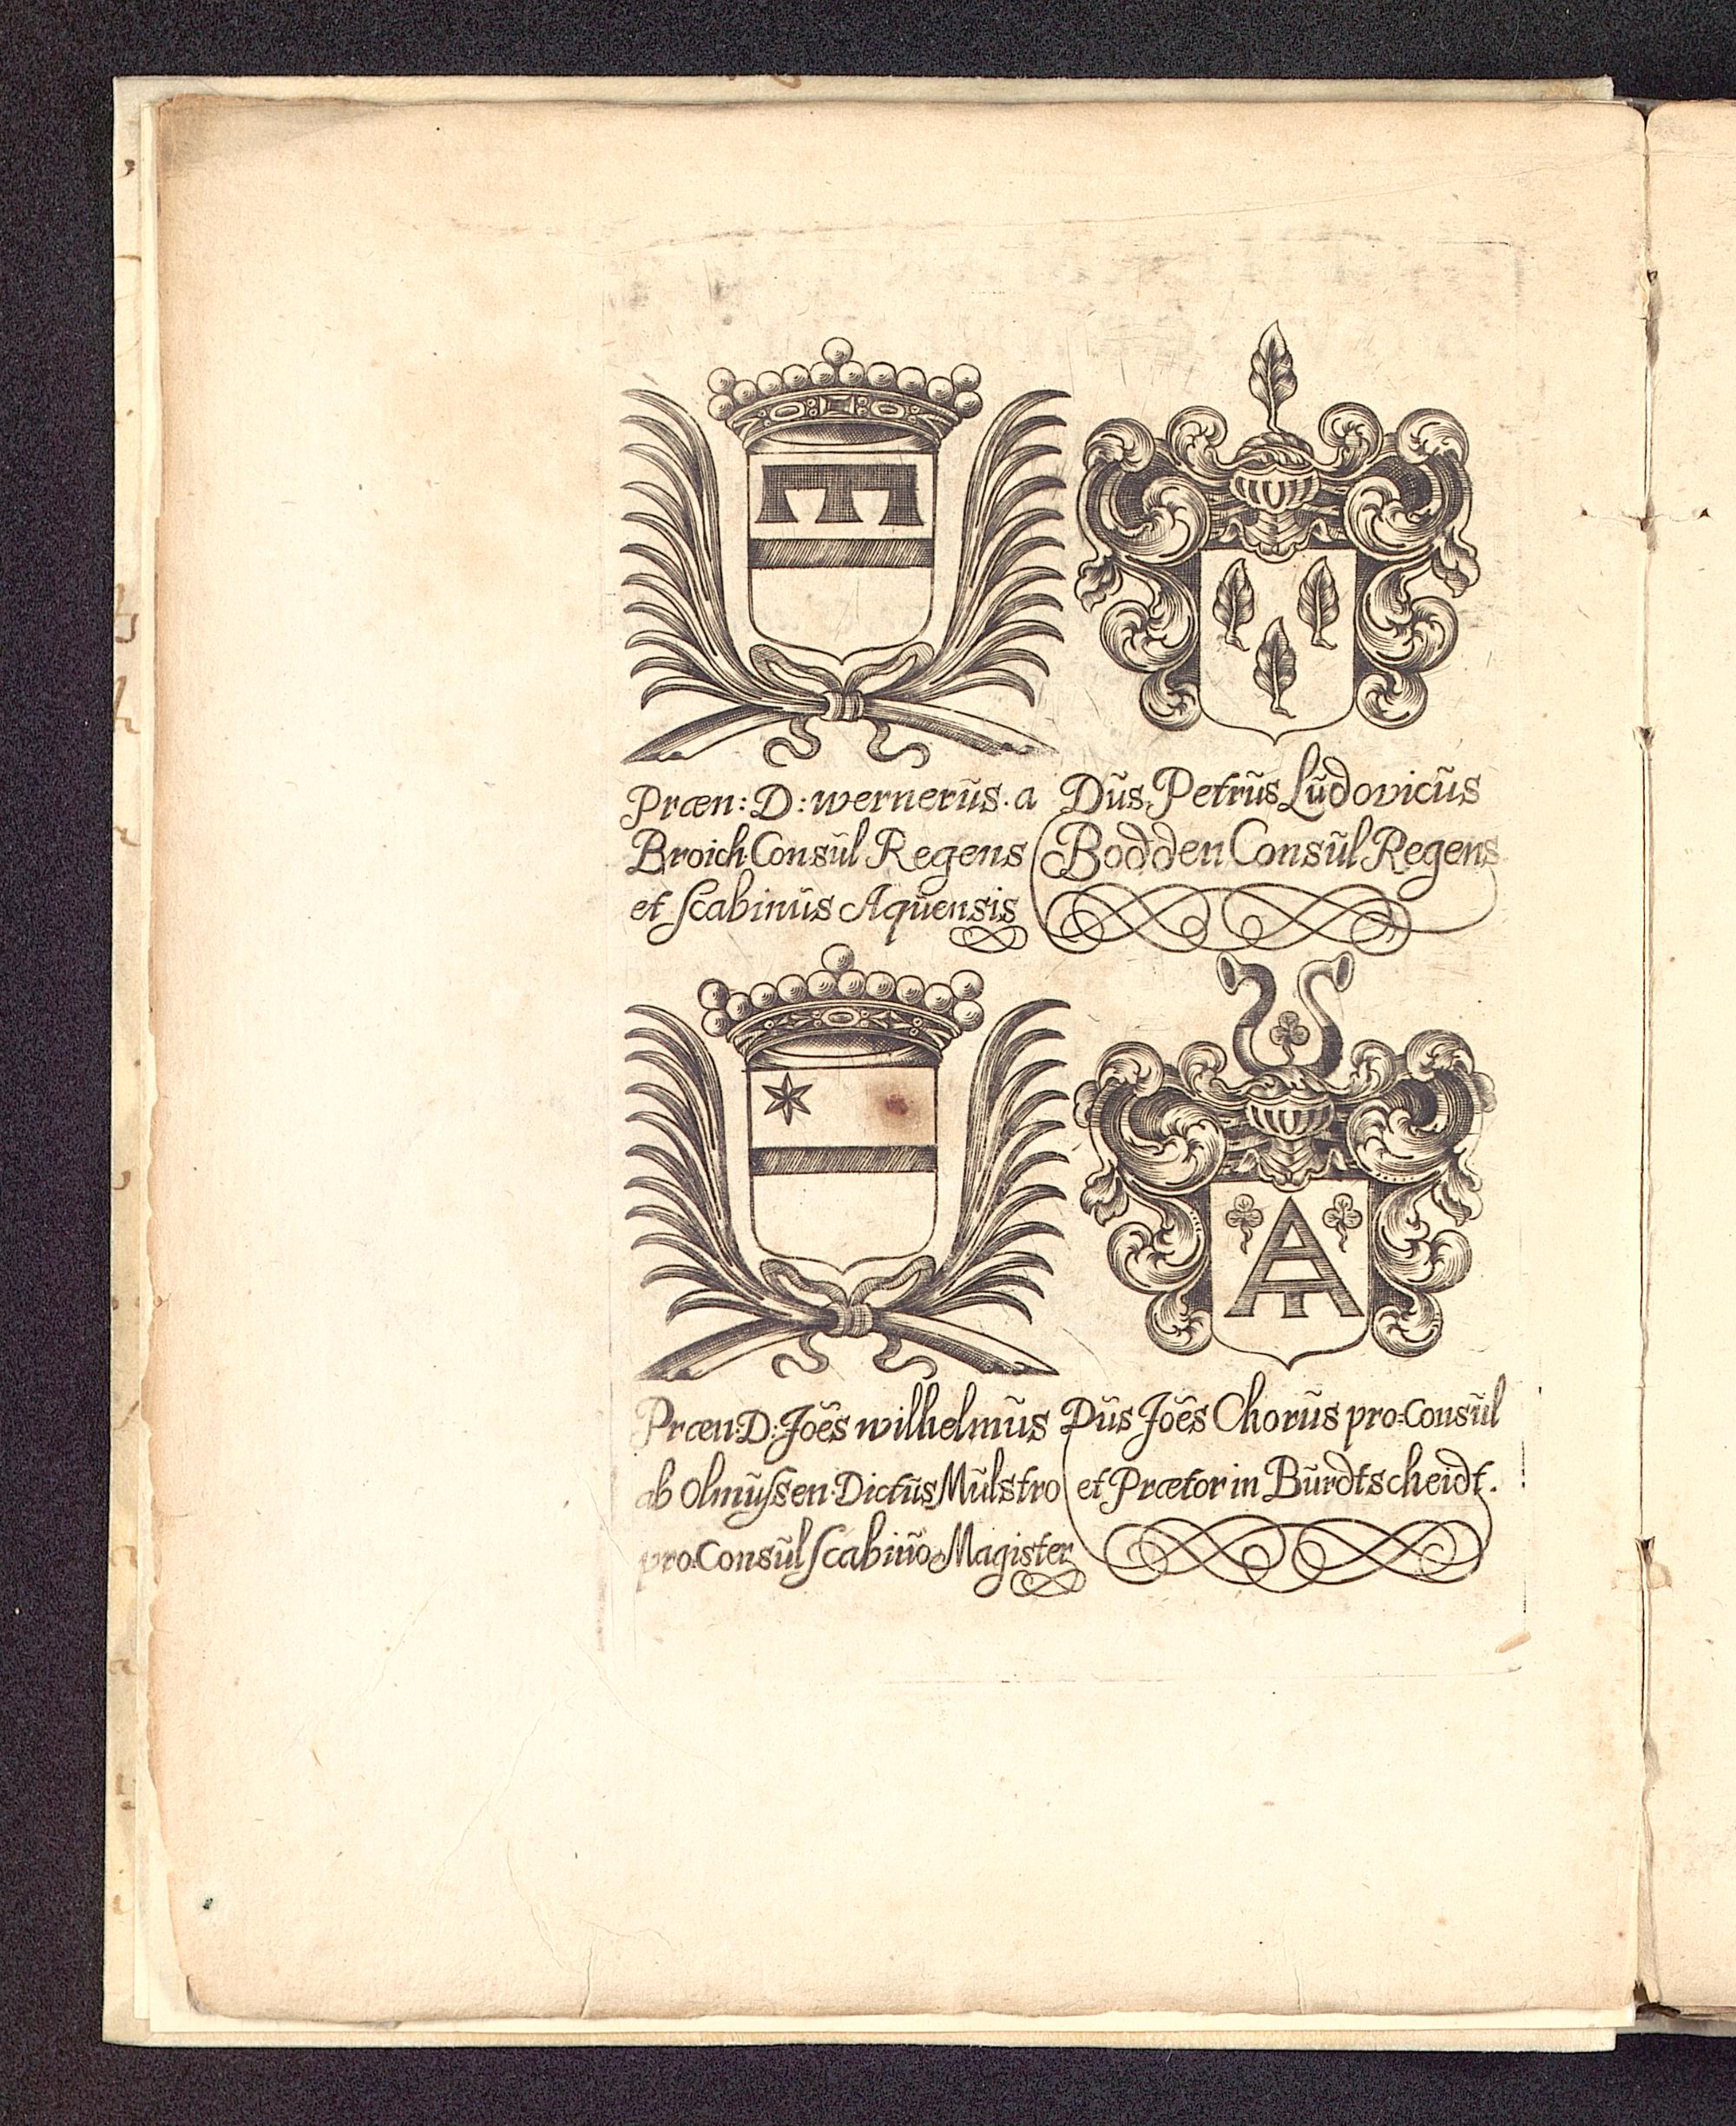 Præn: D: wernerũs. a
Broich Consũl Regens
et Scabinũs Aqũensis
Dũs, Petrũs Lũdovicũs
Bodden Consũl Regens
Præn: D: Joẽs wilhelmũs
ab Olmũssen Dictũs Mũlstro
pro: Consũl Scabinõ Magister
Dũs Joẽs Chorũs pro: Consũl
et Prætor in Bũrdtscheidt.